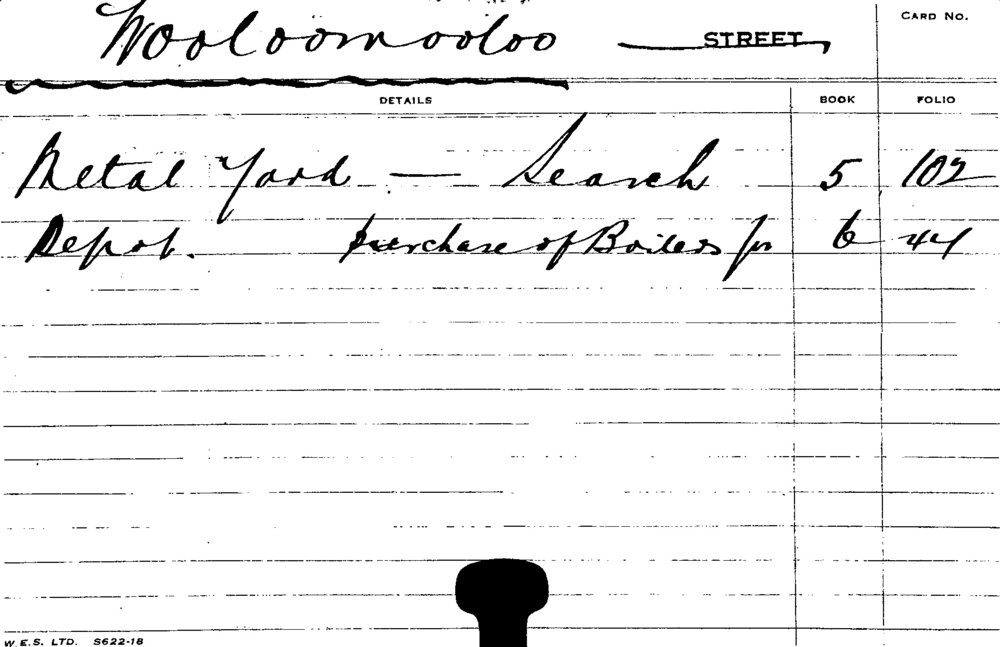 Wooloomooloo STREET CARD NO.
DETAILS BOOK FOLIO
Metal Yard — Search 5 102
Depot. purchase of Boilers for 6 44
W.E.S. LTD. S622-18